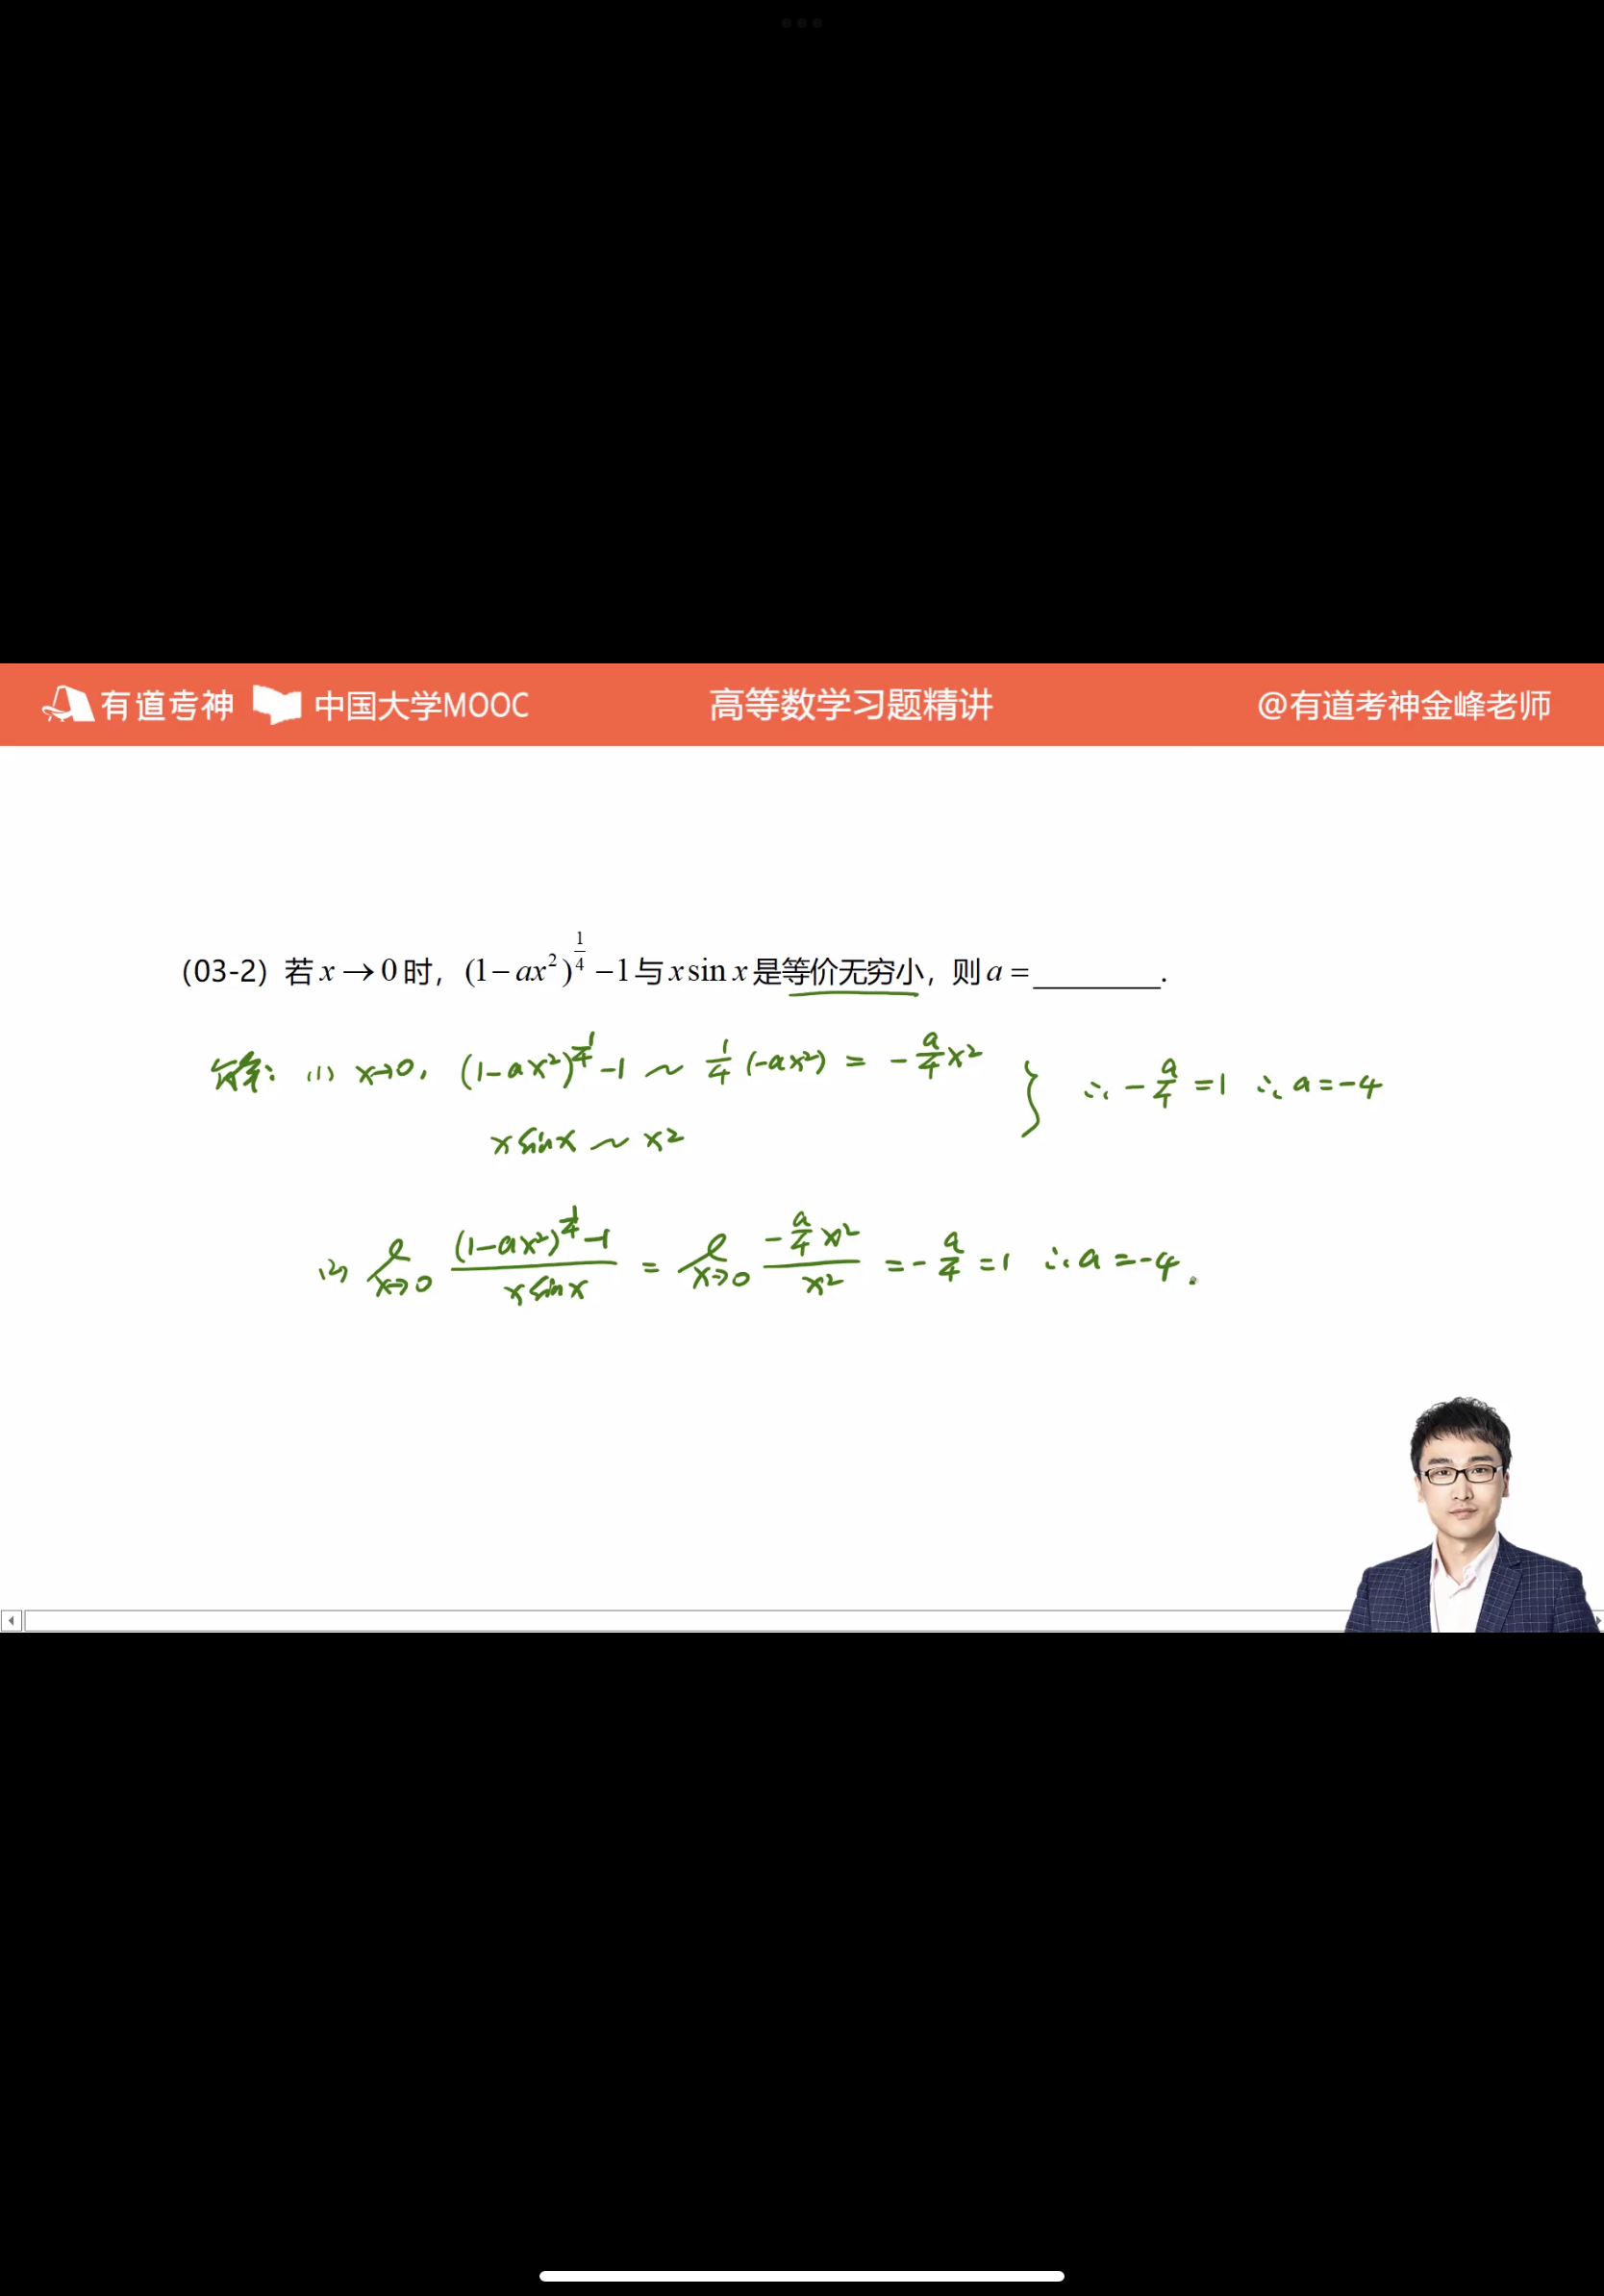 有道考神 中国大学MOOC 高等数学习题精讲 @有道考神金峰老师
（03-2）若 x → 0 时，(1 − ax²)^{1/4} − 1 与 x sin x 是等价无穷小，则 a = ________.
解: (1) x→0, (1−ax²)^{1/4} −1 ~ 1/4 (−ax²) = −a/4 x²
x sin x ~ x² } ∴ −a/4 = 1 ∴ a = −4
(2) l_{x→0} ((1−ax²)^{1/4} −1)/(x sin x) = l_{x→0} (−a/4 x²)/(x²) = −a/4 = 1 ∴ a = −4.